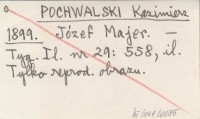 POCHWALSKI Kazimierz
1899. Józef Majer. —
Tyg. Il. nr 29: 558, il.
Tylko reprod. obrazu.